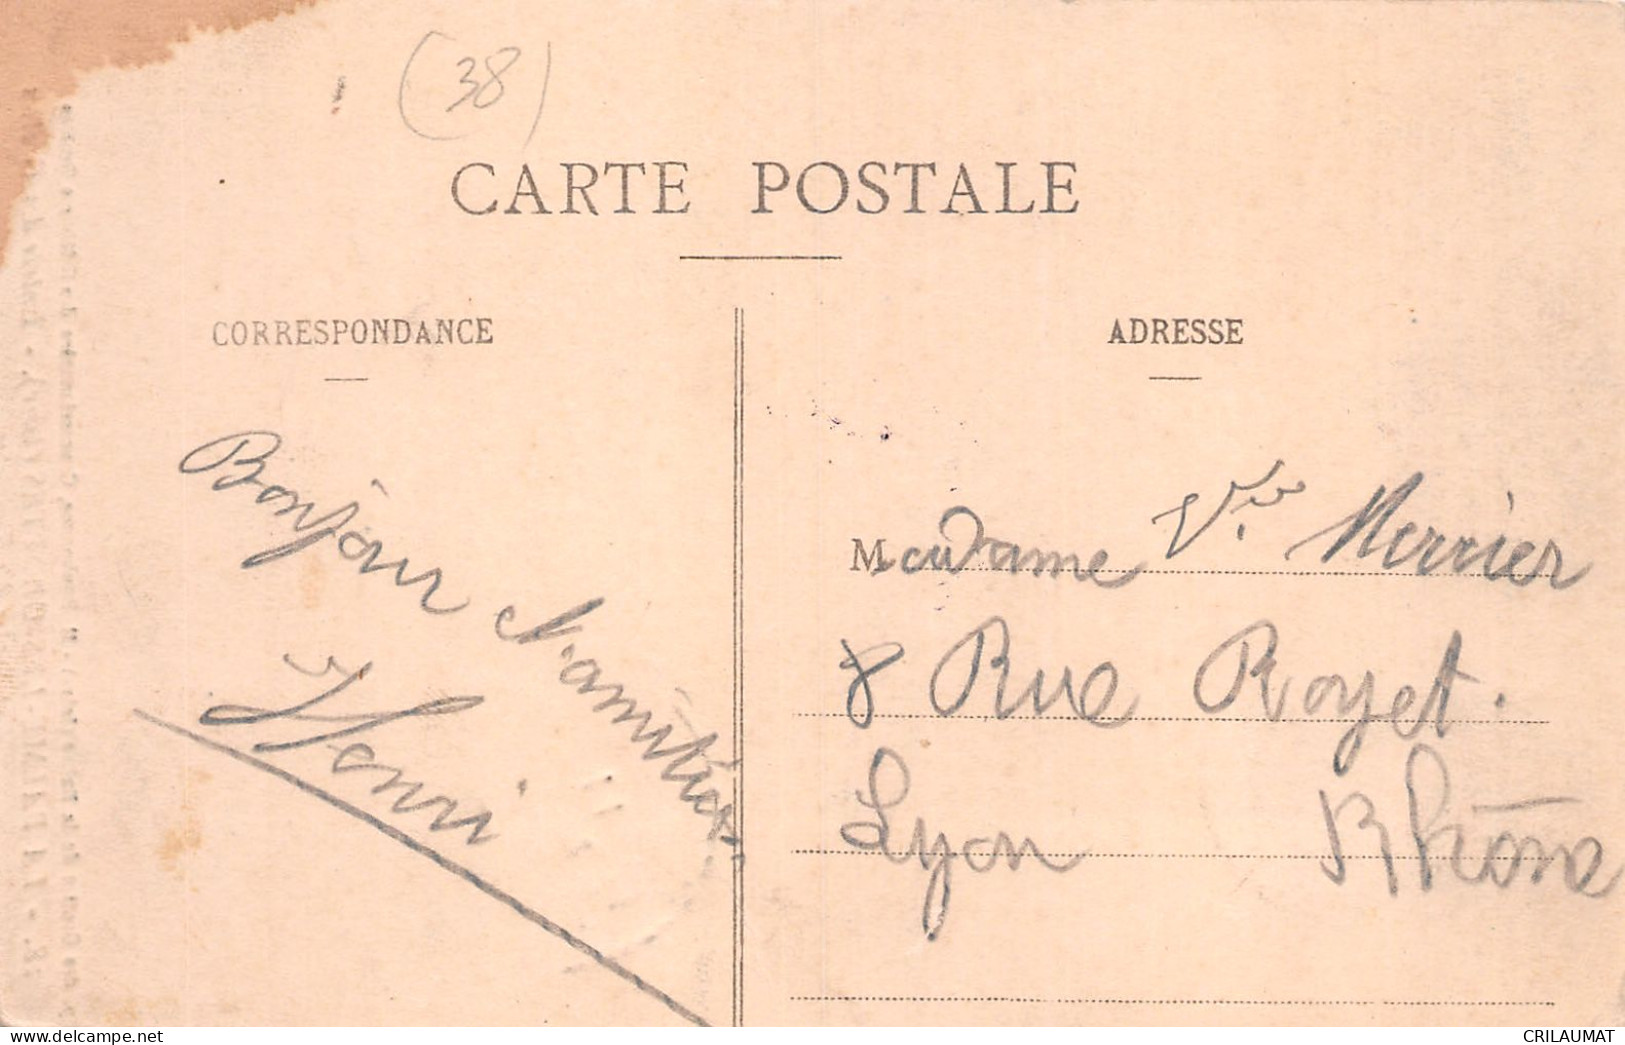 (38)
CARTE POSTALE
CORRESPONDANCE
ADRESSE
Bonjour d'amitiés
Henri
Madame Vve Merrier
8 Rue Royet.
Lyon Rhône
CRILAUMAT